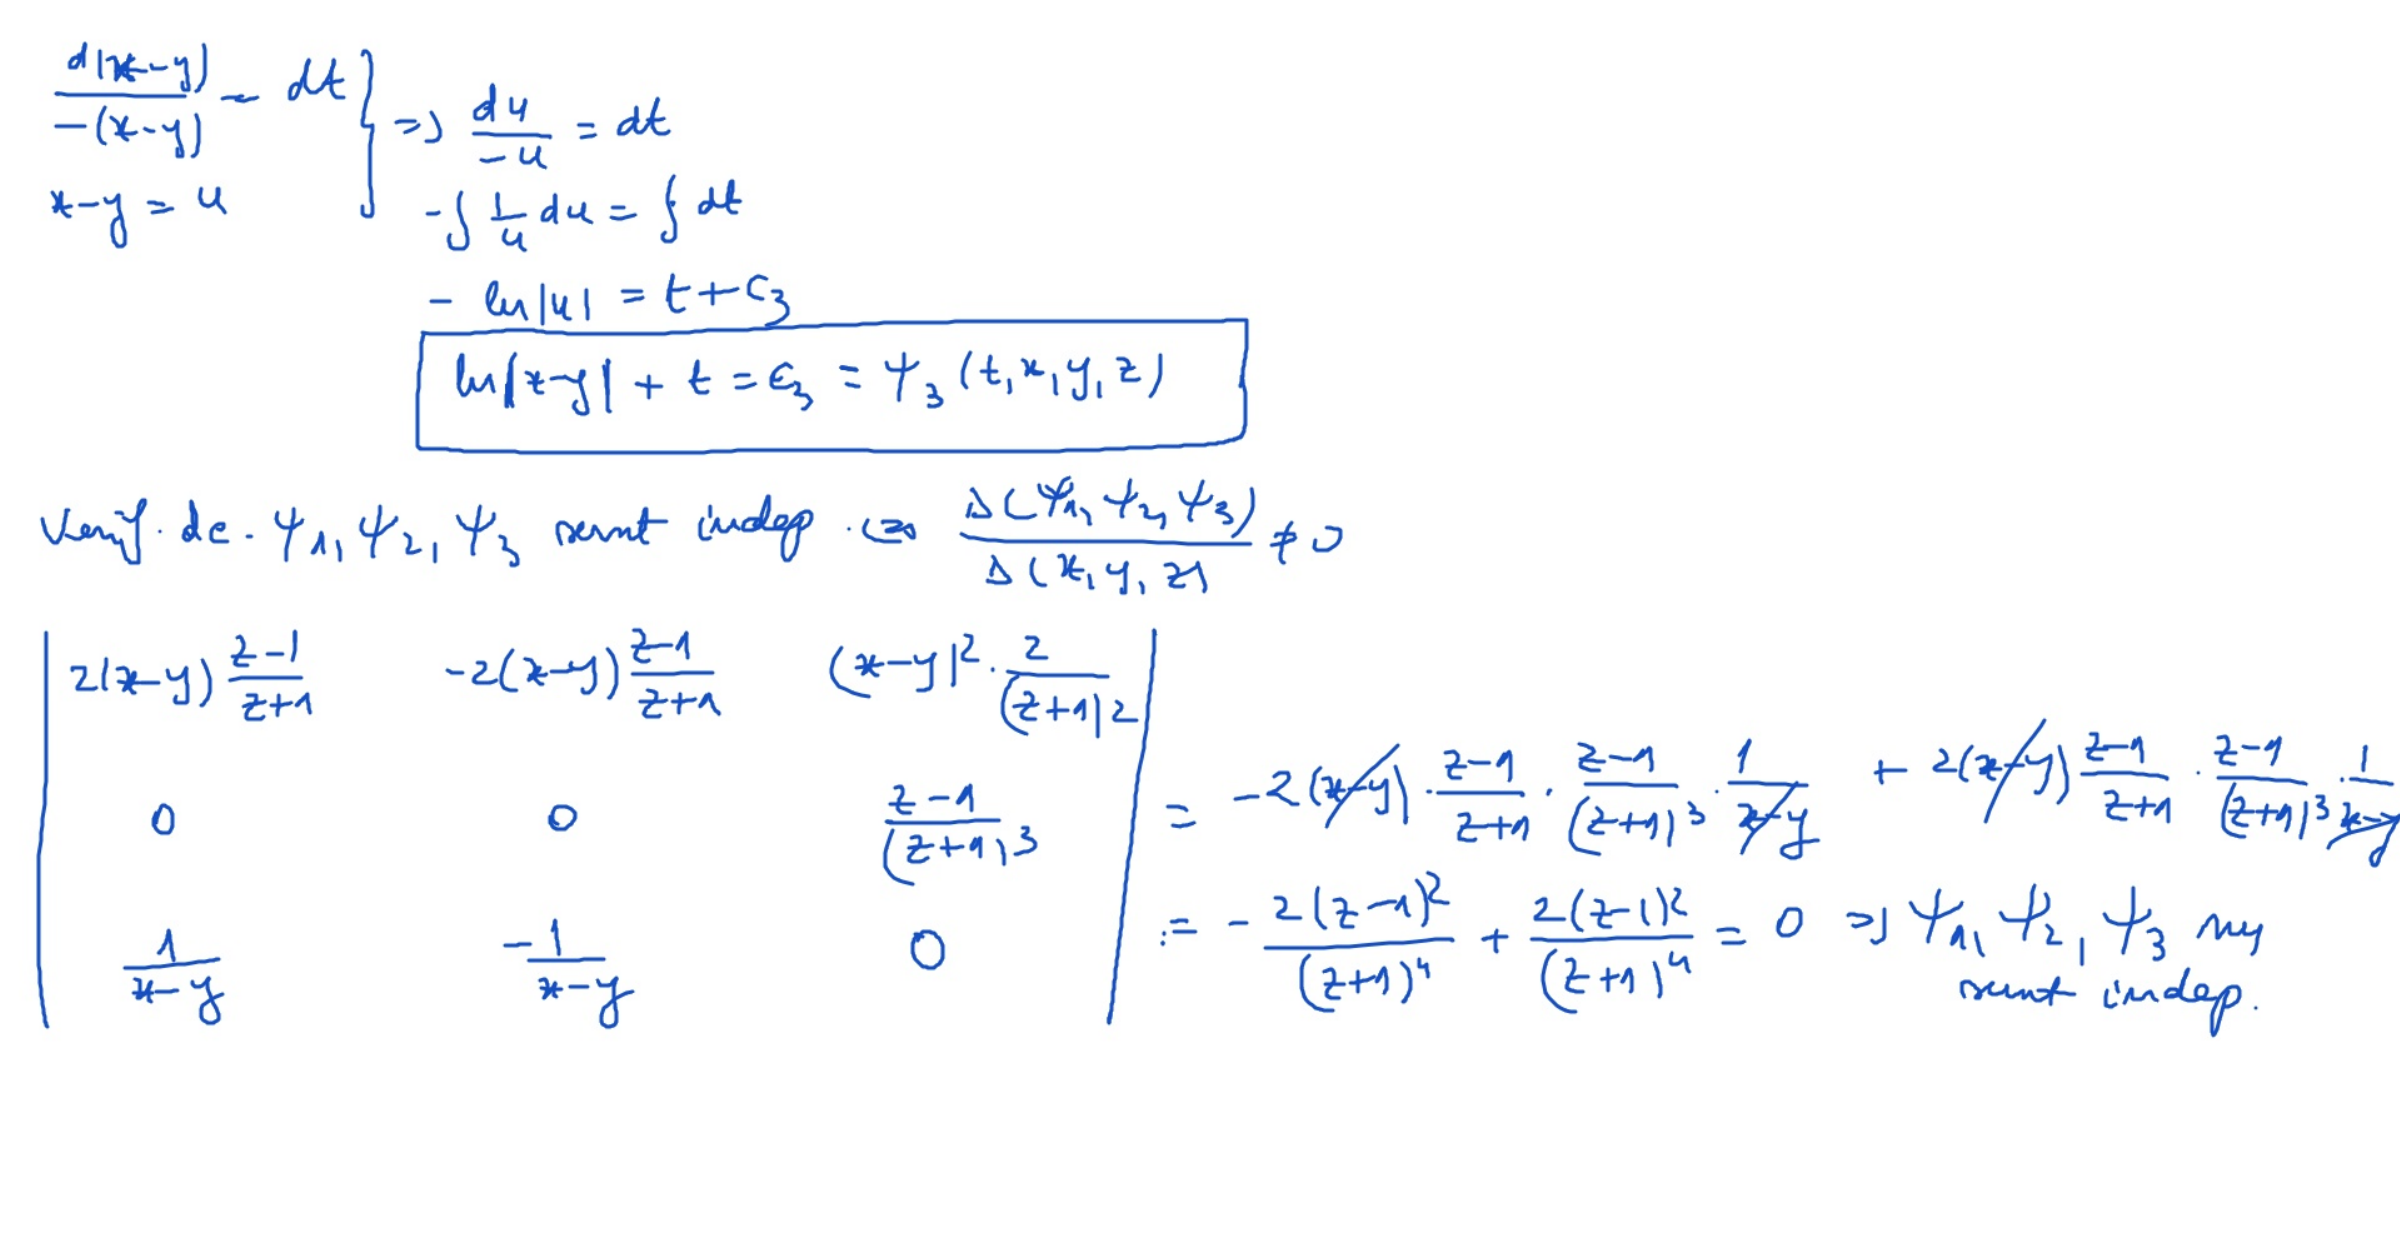 d(x-y)/-(x-y) = dt } => du/-u = dt
x-y = u
-∫ 1/u du = ∫ dt
- ln|u| = t + c3
ln|x-y| + t = c3 = ψ3 (t, x, y, z)
Verif. dc. ψ1, ψ2, ψ3 sunt indep. <=> Δ(ψ1, ψ2, ψ3)/Δ(x, y, z) ≠ 0
| 2(x-y) z-1/z+1   -2(x-y) z-1/z+1   (x-y)² · 2/(z+1)² |
| 0   0   z-1/(z+1)³ | = -2(x-y) · z-1/z+1 · z-1/(z+1)³ · 1/x-y + 2(x-y) z-1/z+1 · z-1/(z+1)³ · 1/x-y
| 1/x-y   -1/x-y   0 | = - 2(z-1)²/(z+1)⁴ + 2(z-1)²/(z+1)⁴ = 0 => ψ1, ψ2, ψ3 nu
sunt indep.